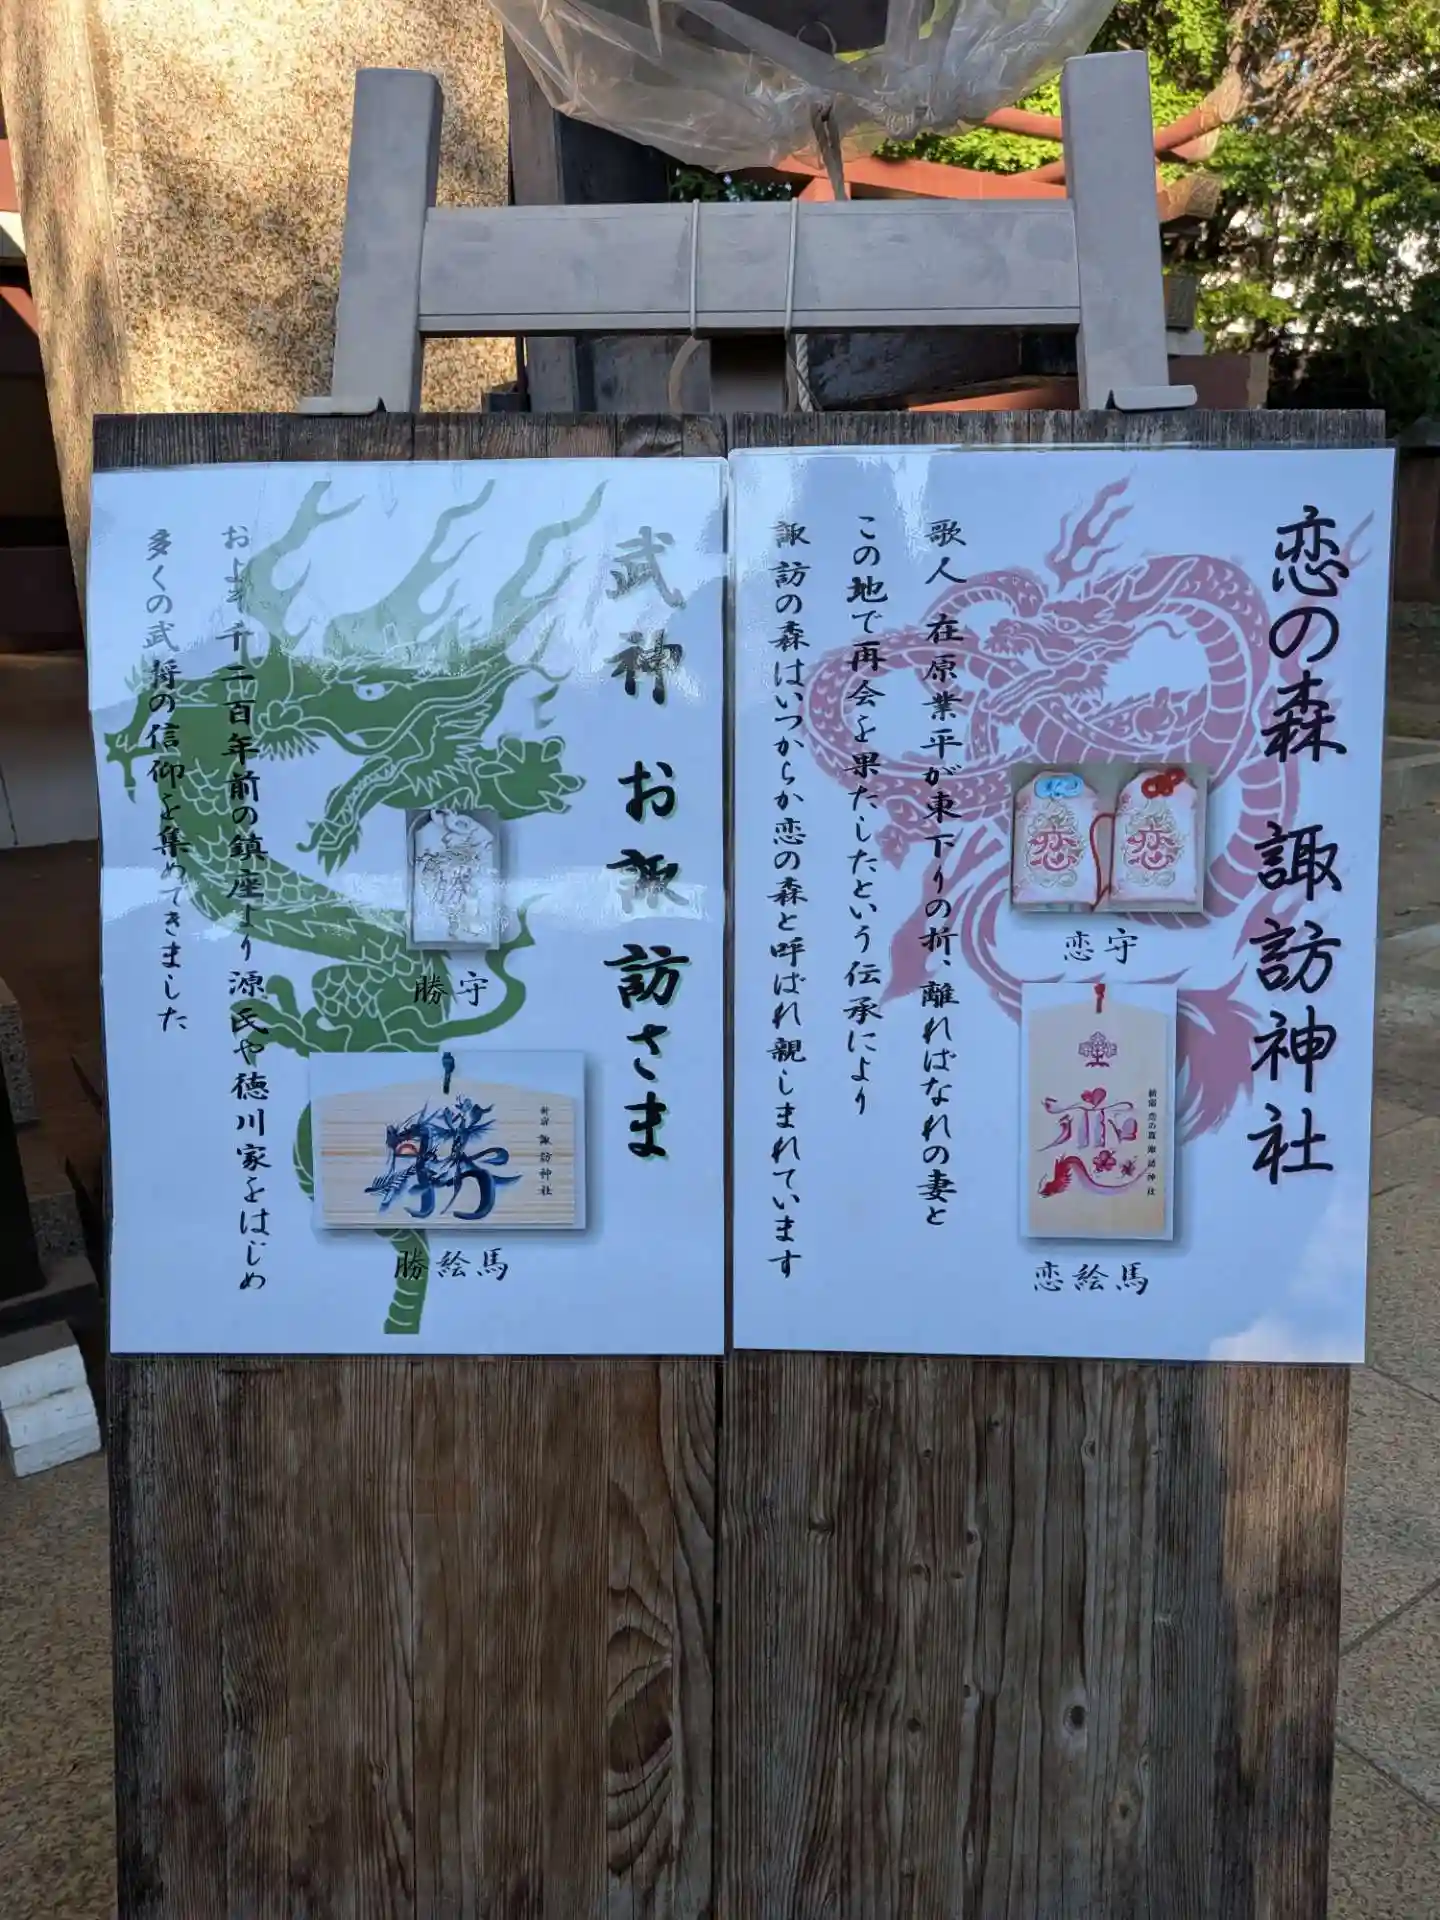 恋の森 諏訪神社
歌人 在原業平が東下りの折、離ればなれの妻と
この地で再会を果たしたという伝承により
諏訪の森はいつからか恋の森と呼ばれ親しまれています
恋
恋
恋守
恋
新宿 恋の森 諏訪神社
恋絵馬
武神 お諏訪さま
およそ千二百年前の鎮座より源氏や徳川家をはじめ
多くの武将の信仰を集めてきました
勝
勝守
勝
新宿 諏訪神社
勝絵馬